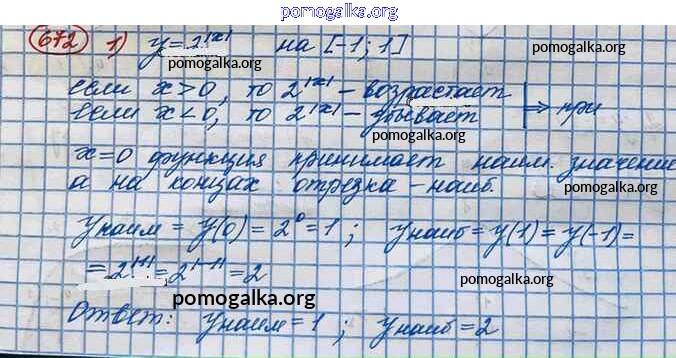 pomogalka.org
672 1) y = 2^|x| на [-1; 1] pomogalka.org
pomogalka.org
если x > 0, то 2^|x| – возрастает
если x < 0, то 2^|x| – убывает ⇒ при
pomogalka.org
x=0 функция принимает наим. значение
а на концах отрезка – наиб. pomogalka.org
y наим = y(0) = 2^0 = 1 ; y наиб = y(1) = y(-1) =
= 2^|1| = 2^|-1| = 2 pomogalka.org
pomogalka.org
Ответ: y наим = 1 ; y наиб = 2